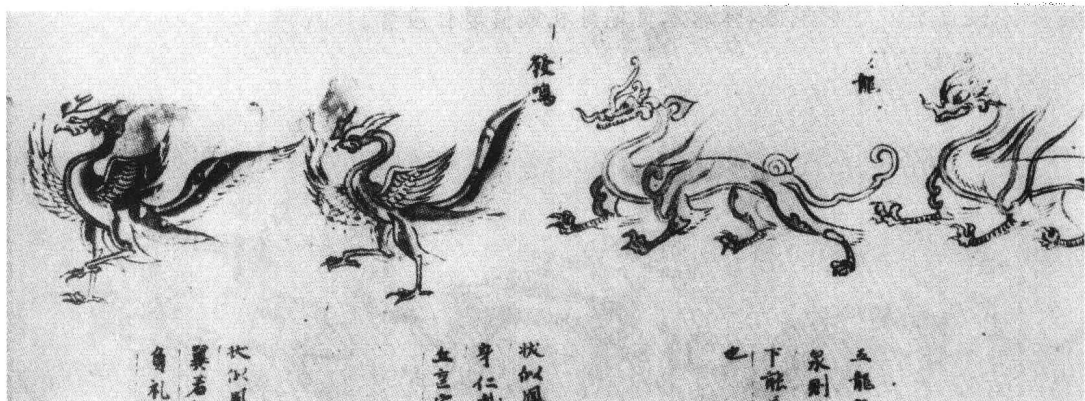 龍
發鳴
五龍
泉則
下能
也
状似鳳
身仁
状似鳳
翼若
身礼